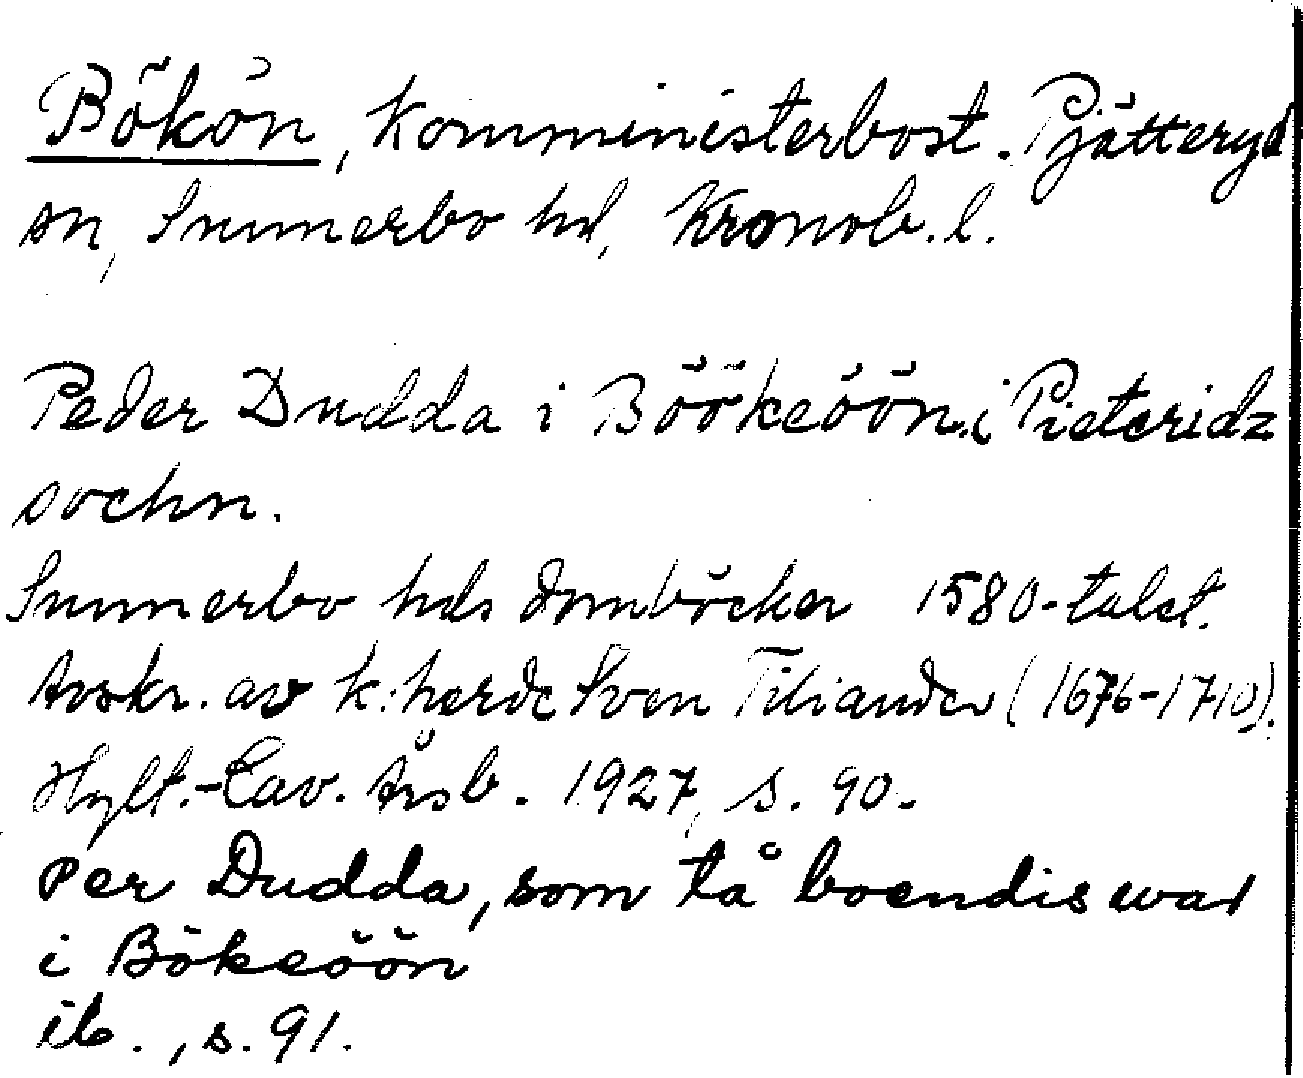 Bökön, Komministerbost. Pjätteryd
sn, Sunnerbo hd, Kronob. l.
Peder Dudda i Böökeöön i Pieteridz
sochn.
Sunnerbo hds domböcker 1580-talet.
Avskr. av k.herde Sven Tiliander (1676-1710).
Hylt.-Cav. Årsb. 1927, s. 90.
Per Dudda, som tå boendis war
i Bökeöön
ib., s. 91.